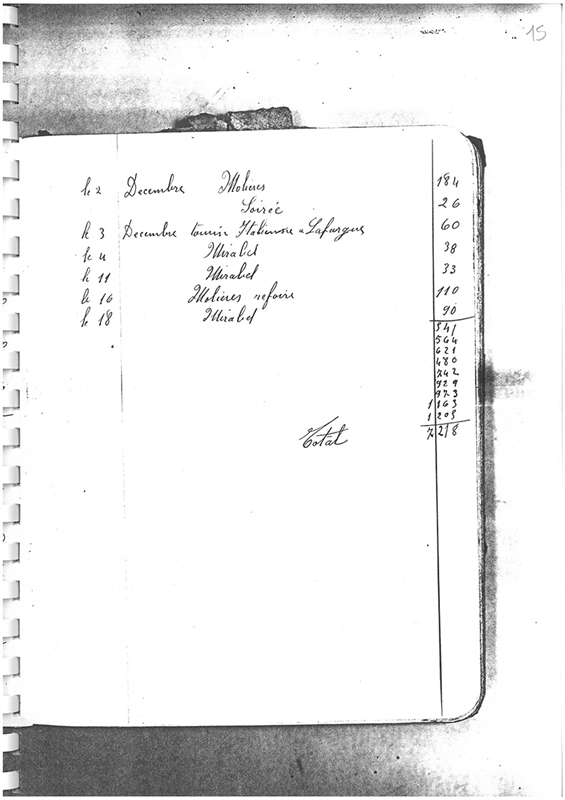 15
le 2 Decembre Molières 184
Soirée 26
le 3 Decembre Italienne a Lafargue 60
le 4 Mirabel 38
le 11 Mirabel 33
le 16 Molières refoire 110
le 18 Mirabel 90
541
564
621
480
742
929
973
1 163
1 205
Total 7 218